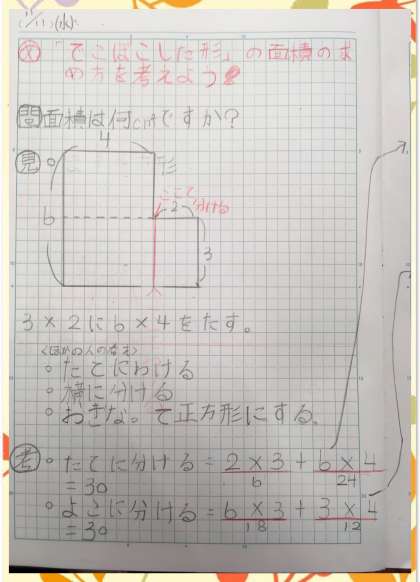 1/11(水)
め 「でこぼこした形」の面積のも
め方を考えよう?
問 面積は何cm²ですか?
4
見 形
ここで
分ける
2
6
3
3×2に6×4をたす。
<ほかの人の考え>
たてにわける
横に分ける
て正方形にする。
考 たてに分ける=2×3+6×4
6 24
=30
よこに分ける=6×3+3×4
18 12
=30